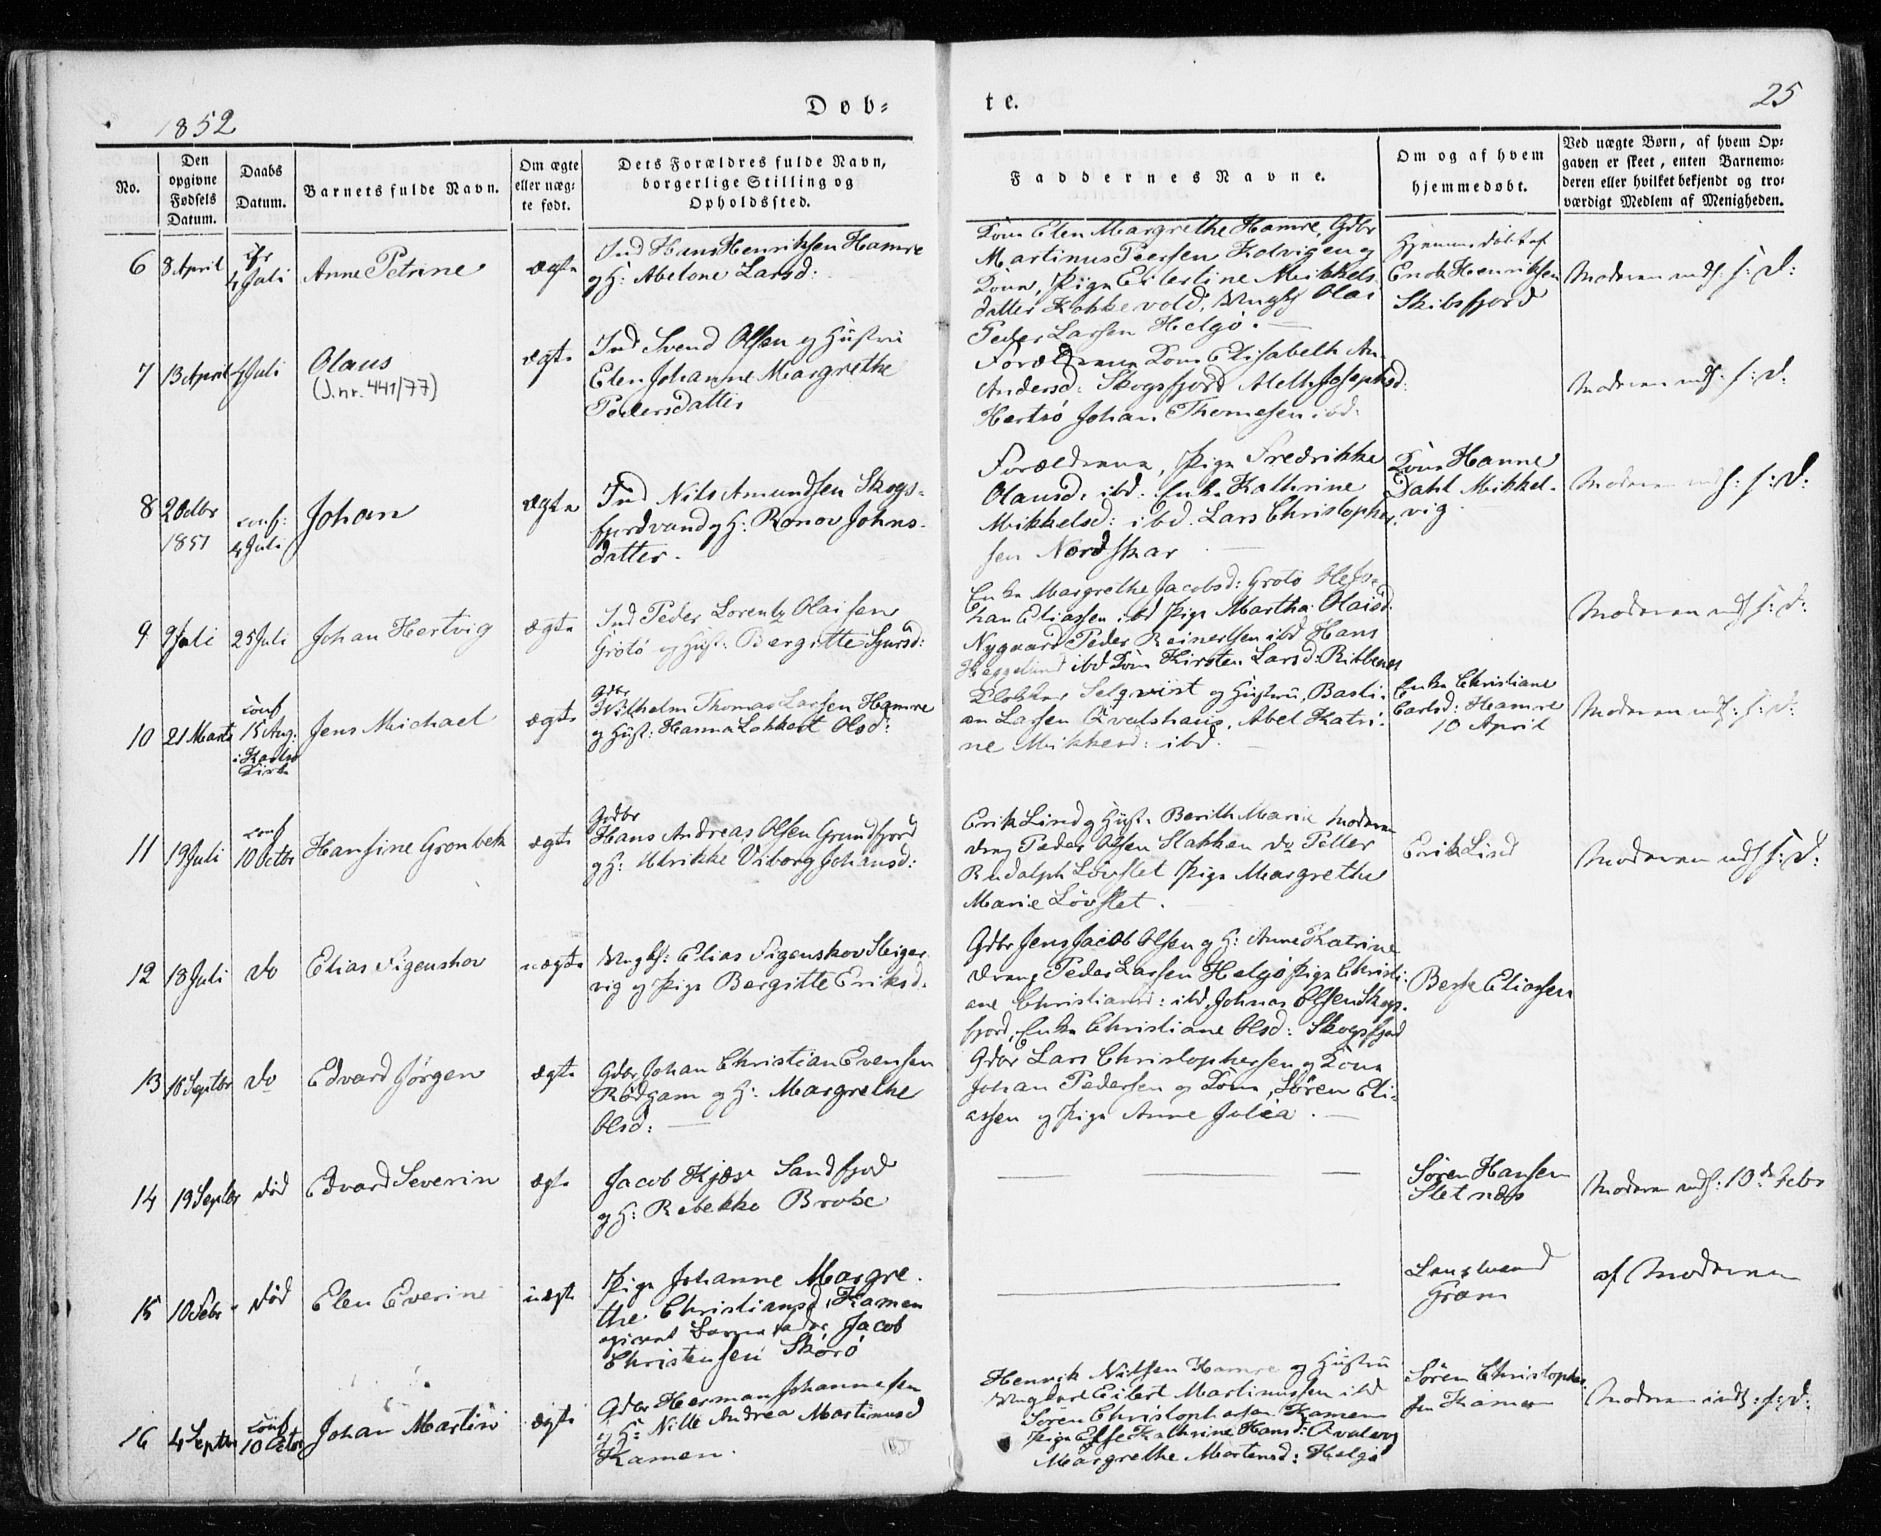 1852
Døb=
te.
25
No.
Den opgivne Fødsels Datum.
Daabs Datum.
Barnets fulde Navn.
Om ægte eller uæg- te født.
Dets Forældres fulde Navn, borgerlige Stilling og Opholdssted.
Faddernes Navne.
Om og af hvem hjemmedøbt.
Ved uægte Børn, af hvem Op- gaven er skeet, enten Barnemo- deren eller hvilket bekjendt og tro- værdigt Medlem af Menigheden.
6 8 April 4 Juli Anne Petrine ægte
Ind Hans Henriksen Hamre
og H: Abelone Larsd:
Kone Elen Margrethe Hamre, Gdbr
Martinus Peersen Kolvigen og
Kone, Pige Eilertine Mikkels-
datter Kokkevold, Ungk Olai
Peder Larsen Helgø.
Hjemmedøbt af
Enok Henriksen
Skibsfjord
Moderen inds: s: D:
7 13 April 4 Juli Olaus ægte
(J.nr. 441/77)
Ind Svend Olsen og Hustru
Elen Johanne Margrethe
Pedersdatter
Forældrene Kone Elisabeth An
Andersd: Skogsfjord Aleth Josephsd:
Hertsø Johan Thomesen ibd:
Moderen inds: s: D.
8 20 dbr 1851 conf: 4 Juli Johan ægte
Ind Nils Amundsen Skogs-
fjordvand og H: Ronov Johns-
datter.
Forældrene, Pige Fredrikke
Olausd: ibd: Enke Kathrine
Mikkelsd: ibd. Lars Christopher-
sen Nordskar
Kone Hanne
Dahl Mikkel-
vig
Moderen inds: s: D:
9 9 Juli 25 Juli Johan Hertvig ægte
Ind Peder Lorentz Olaisen
Grotø og Hust: Bergitte Sjursd:
Enke Margrethe Jacobsd: Grotø
han Eliassen ibd Pige Martha Olaisd:
Nygaard Peder Reinertsen ibd Hans
Heggelund ibd Kone Kirsten Larsd: Ribbenes
Moderen inds s: D:
10 21 Marts conf 15 Aug: i Karlsø Kirke Jens Michael ægte
Gdbr
Wilhelm Thomas Larsen Hamre
og Hust: Hanna Lokkert Olsd:
Klokker Selqvist og Hustru, Basti-
an Larsen Qvalshaus, Abel Katri-
ne Mikkelsd: ibd.
Enke Christiane
Carlsd: Hamre
10 April
Moderen inds: s: D:
11 19 Juli conf 10 Octbr Hansine Gronbek ægte
Grdbr
Hans Andreas Olsen Grundfjord
og H: Ulrikke Viborg Johansd:
Erik Lind og Hust. Berith Marie Moderen
dreng Peder Olsen Stakken do Petter
Rudolph Løvflet Pige Margrethe
Marie Løvflet.
Erik Lind
Moderen inds s: D:
12 18 Juli do Elias Figenskov uægte
Ungk: Elias Figenskov Steiger-
vig og Pige Bergitte Eriksd.
Gdbr Jens Jacob Olsen og H: Anne Katrine
dreng Peder Larsen Helgø Pige Christi-
ane Christiansd: ibd, Johnas Olsen Skogs-
fjord, Enke Christiane Olsd: Skogsfjord
Berte Eliassen
13 10 Septbr do Edvard Jørgen ægte
Gdbr Johan Christian Evensen
Rødgam og H: Margrethe
Olsd:
Gdbr Lars Christophersen og Kone
Johan Pedersen og Kone, Søren Eli-
assen og Pige Anne Julia.
14 19 Septbr død Edvard Severin ægte
Jacob Kjær Sandfjord
og H: Rebekka Brose
Søren Hansen
Sletnæs
Moderen inds: 10de Febr
15 10 Febr død Elen Everine uægte
Pige Johanne Margre-
the Christiansd: Kamen
opgivent Barnefader Jacob
Christensen Skorø
Lensmand
Gram
af Moderen
16 4 Septbr conf 10 Octbr Johan Martin ægte
Gdbr Herman Johannesen
og H: Nille Andrea Martinusd
Kamen.
Henrik Nilssen Kamre og Hustru
Ungkarl Eilert Martinussen ibd
Søren Christophersen Kamen
Pige Else Kathrine Hansd:
Margrethe Mortensd: Helgø
Søren Christopher-
sen Kamen
Moderen inds: s: D: